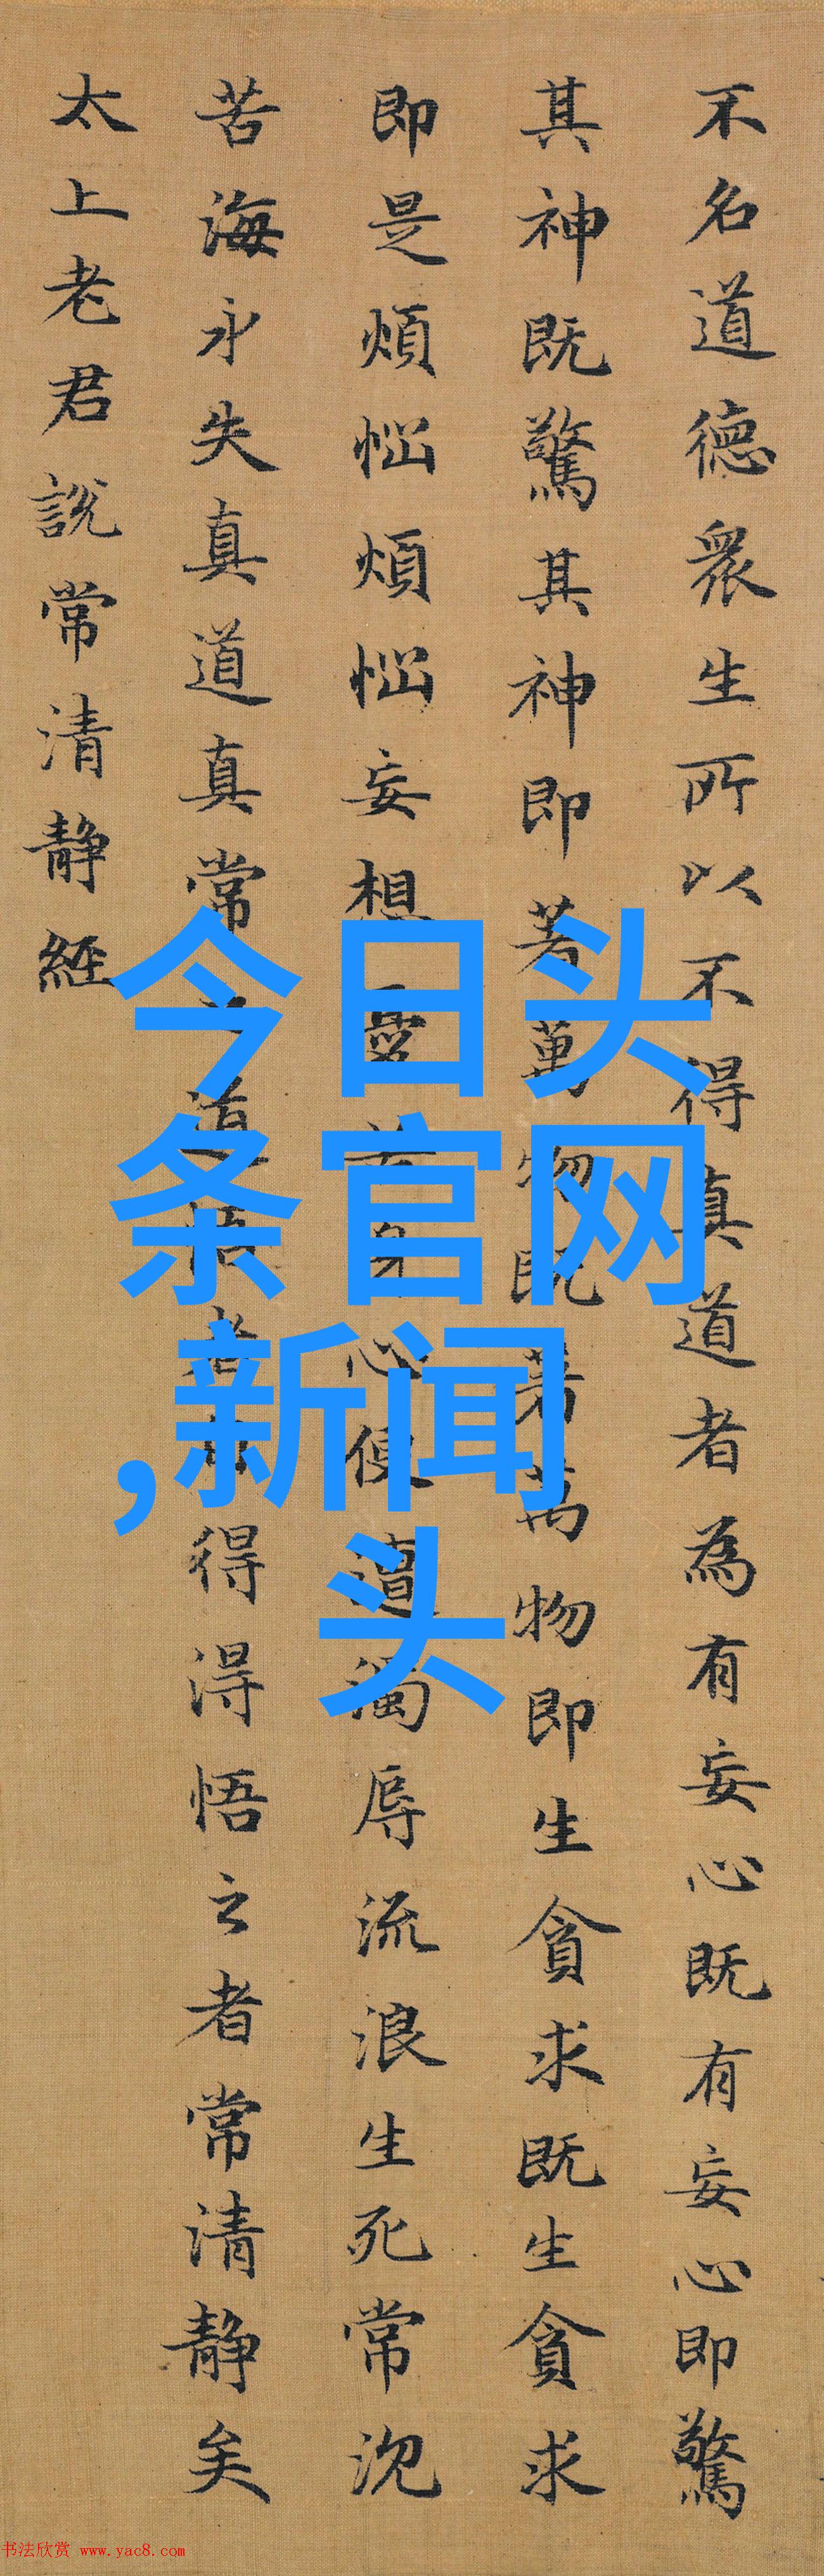 不名道德眾生所以不得真道者為有妄心既有妄心即驚
其神既驚其神即著萬物既著萬物即生貪求既生貪求
即是煩惱煩惱妄想憂苦身心便遭濁辱流浪生死常沉
苦海永失真道真常之道悟者自得得悟之者常清靜矣
太上老君說常清靜經
今日头
条官网
,新闻
头
书法欣赏 www.yac8.com